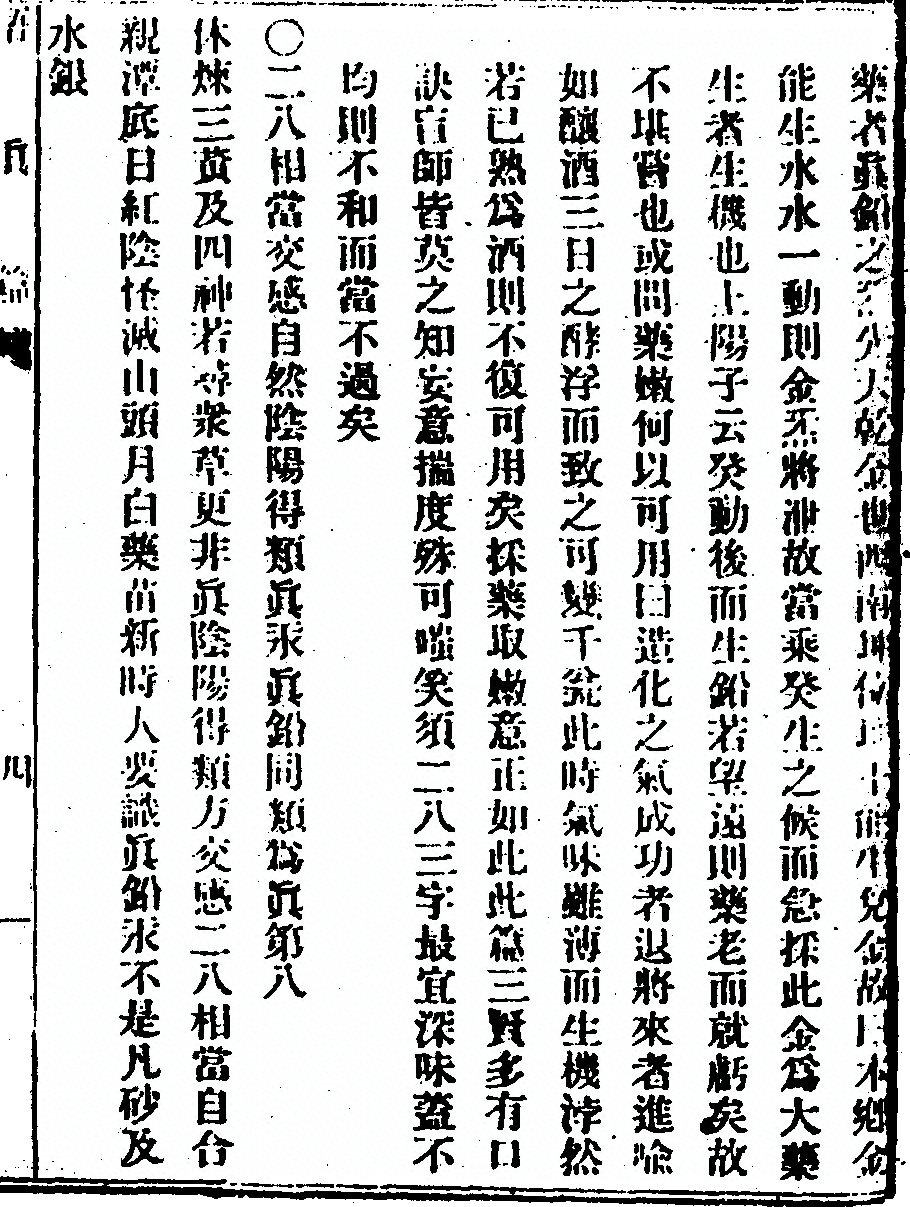 藥者眞鉛之炁先天乾金也西南坤位坤土能生兌金故曰本鄉金
能生水水一動則金炁將泄故當乘癸生之候而急採此金爲大藥
生者生機也上陽子云癸動後而生鉛若望遠則藥老而就虧矣故
不堪嘗也或問藥嫩何以可用曰造化之氣成功者退將來者進喻
如釀酒三日之酵浮而致之可變千瓮此時氣味雖薄而生機浡然
若已熟爲酒則不復可用矣採藥取嫩意正如此此篇三賢多有口
訣盲師皆莫之知妄意揣度殊可嗤笑須二八三字最宜深味蓋不
均則不和而當不過矣
○二八相當交感自然陰陽得類眞汞眞鉛同類爲眞第八
休煉三黃及四神若尋衆草更非眞陰陽得類方交感二八相當自合
親潭底日紅陰怪滅山頭月白藥苗新時人要識眞鉛汞不是凡砂及
水銀